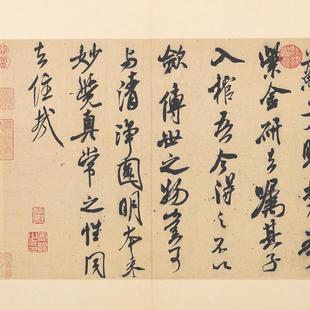 紫金研去嘱其子
入棺吾今得之不以
歛傳世之物豈可
与清淨圓明本来
妙覺真常之性同
去住哉